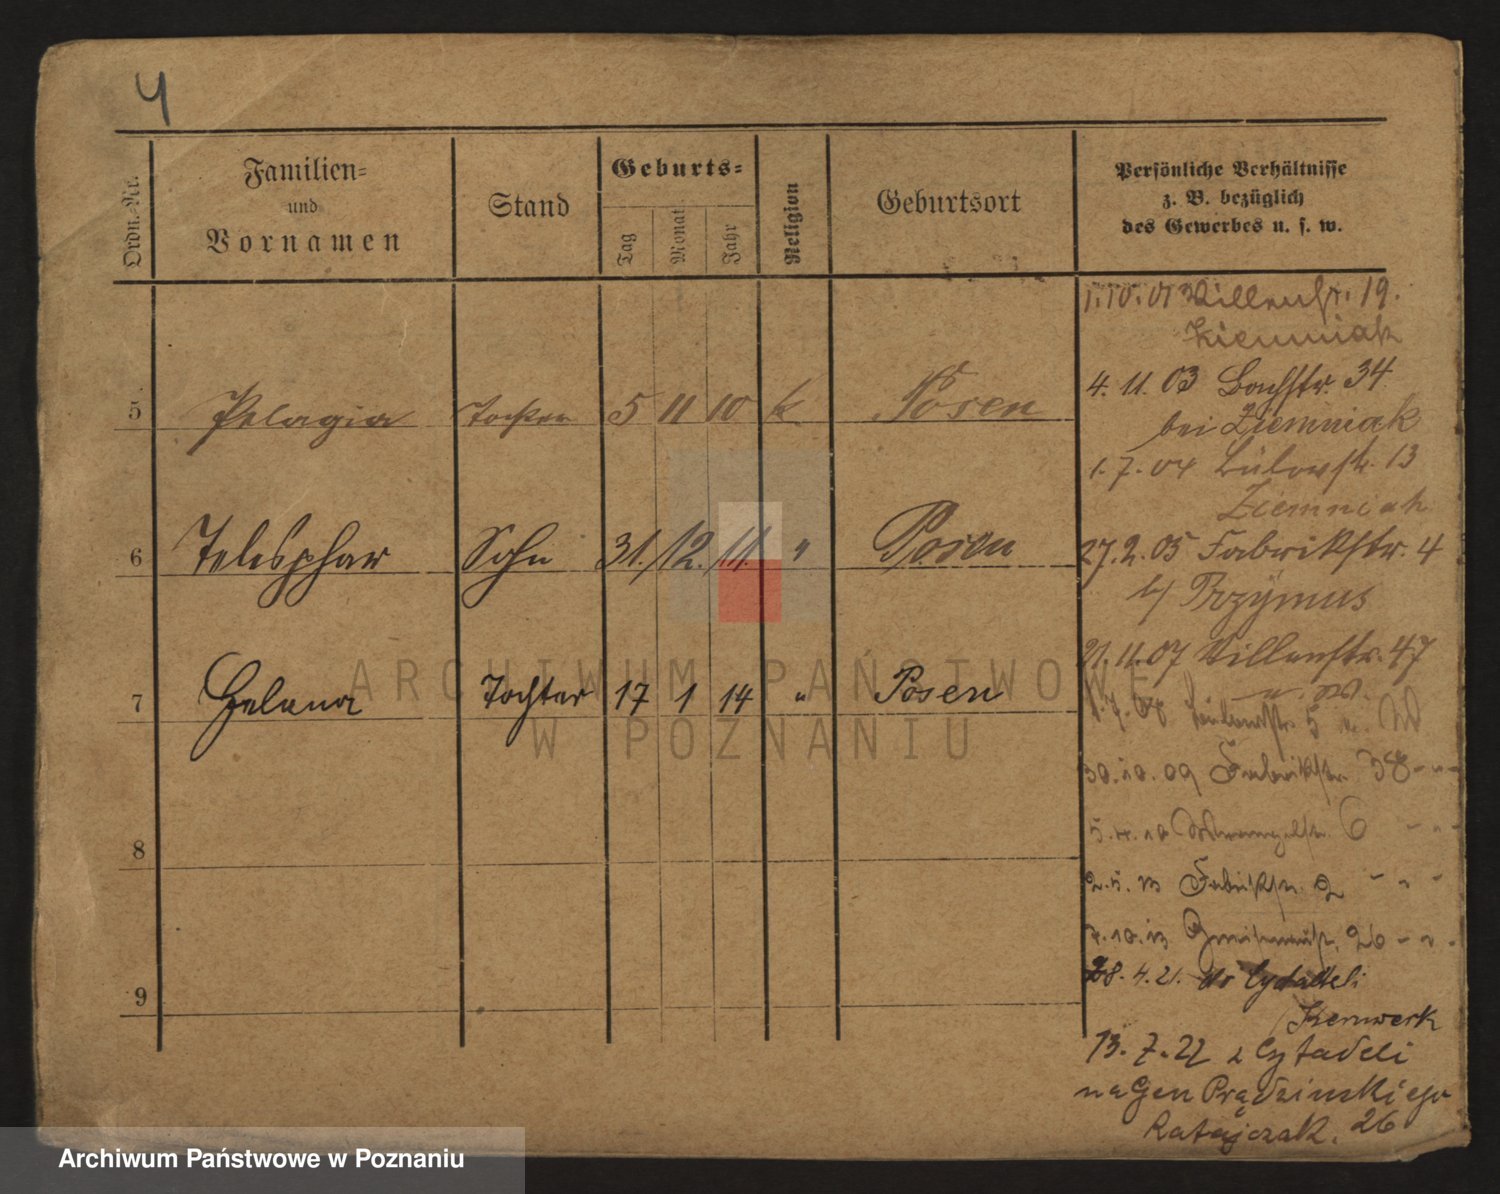 4
Ordn.-Nr.
Familien-
und
Vornamen
Stand
Geburts-
Tag
Monat
Jahr
Religion
Geburtsort
Persönliche Verhältnisse
z. B. bezüglich
des Gewerbes u. s. w.
5 Pelagia Tochter 5 11 10 k Posen
6 Telesphor Sohn 31. 12. 11. " Posen
7 Helena Tochter 17 1 14 " Posen
8
9
1.10.01 Villenstr. 19.
Ziemniak
4. 11. 03 Bachstr. 34
bei Ziemniak
1. 7. 04 Bülowstr. 13
Ziemniak
27.2.05 Fabrikstr. 4
b/ Przymus
21.11.07 Villenstr. 47
u. W.
1.7.08 5 u. W
30.10.09 Fabrikstr. 38 - " -
5.4.10 Wrangelstr. 6 - " -
2.5.13 Fabrikstr. 2 - " -
7.10.13 Gneisenaustr. 26 - " -
28.4.21. do Cytadeli
Kernwerk
13.7.22 z Cytadeli
na Gen Prądzinskiego
Ratajczak. 26
ARCHIWUM PAŃSTWOWE
W POZNANIU
Archiwum Państwowe w Poznaniu